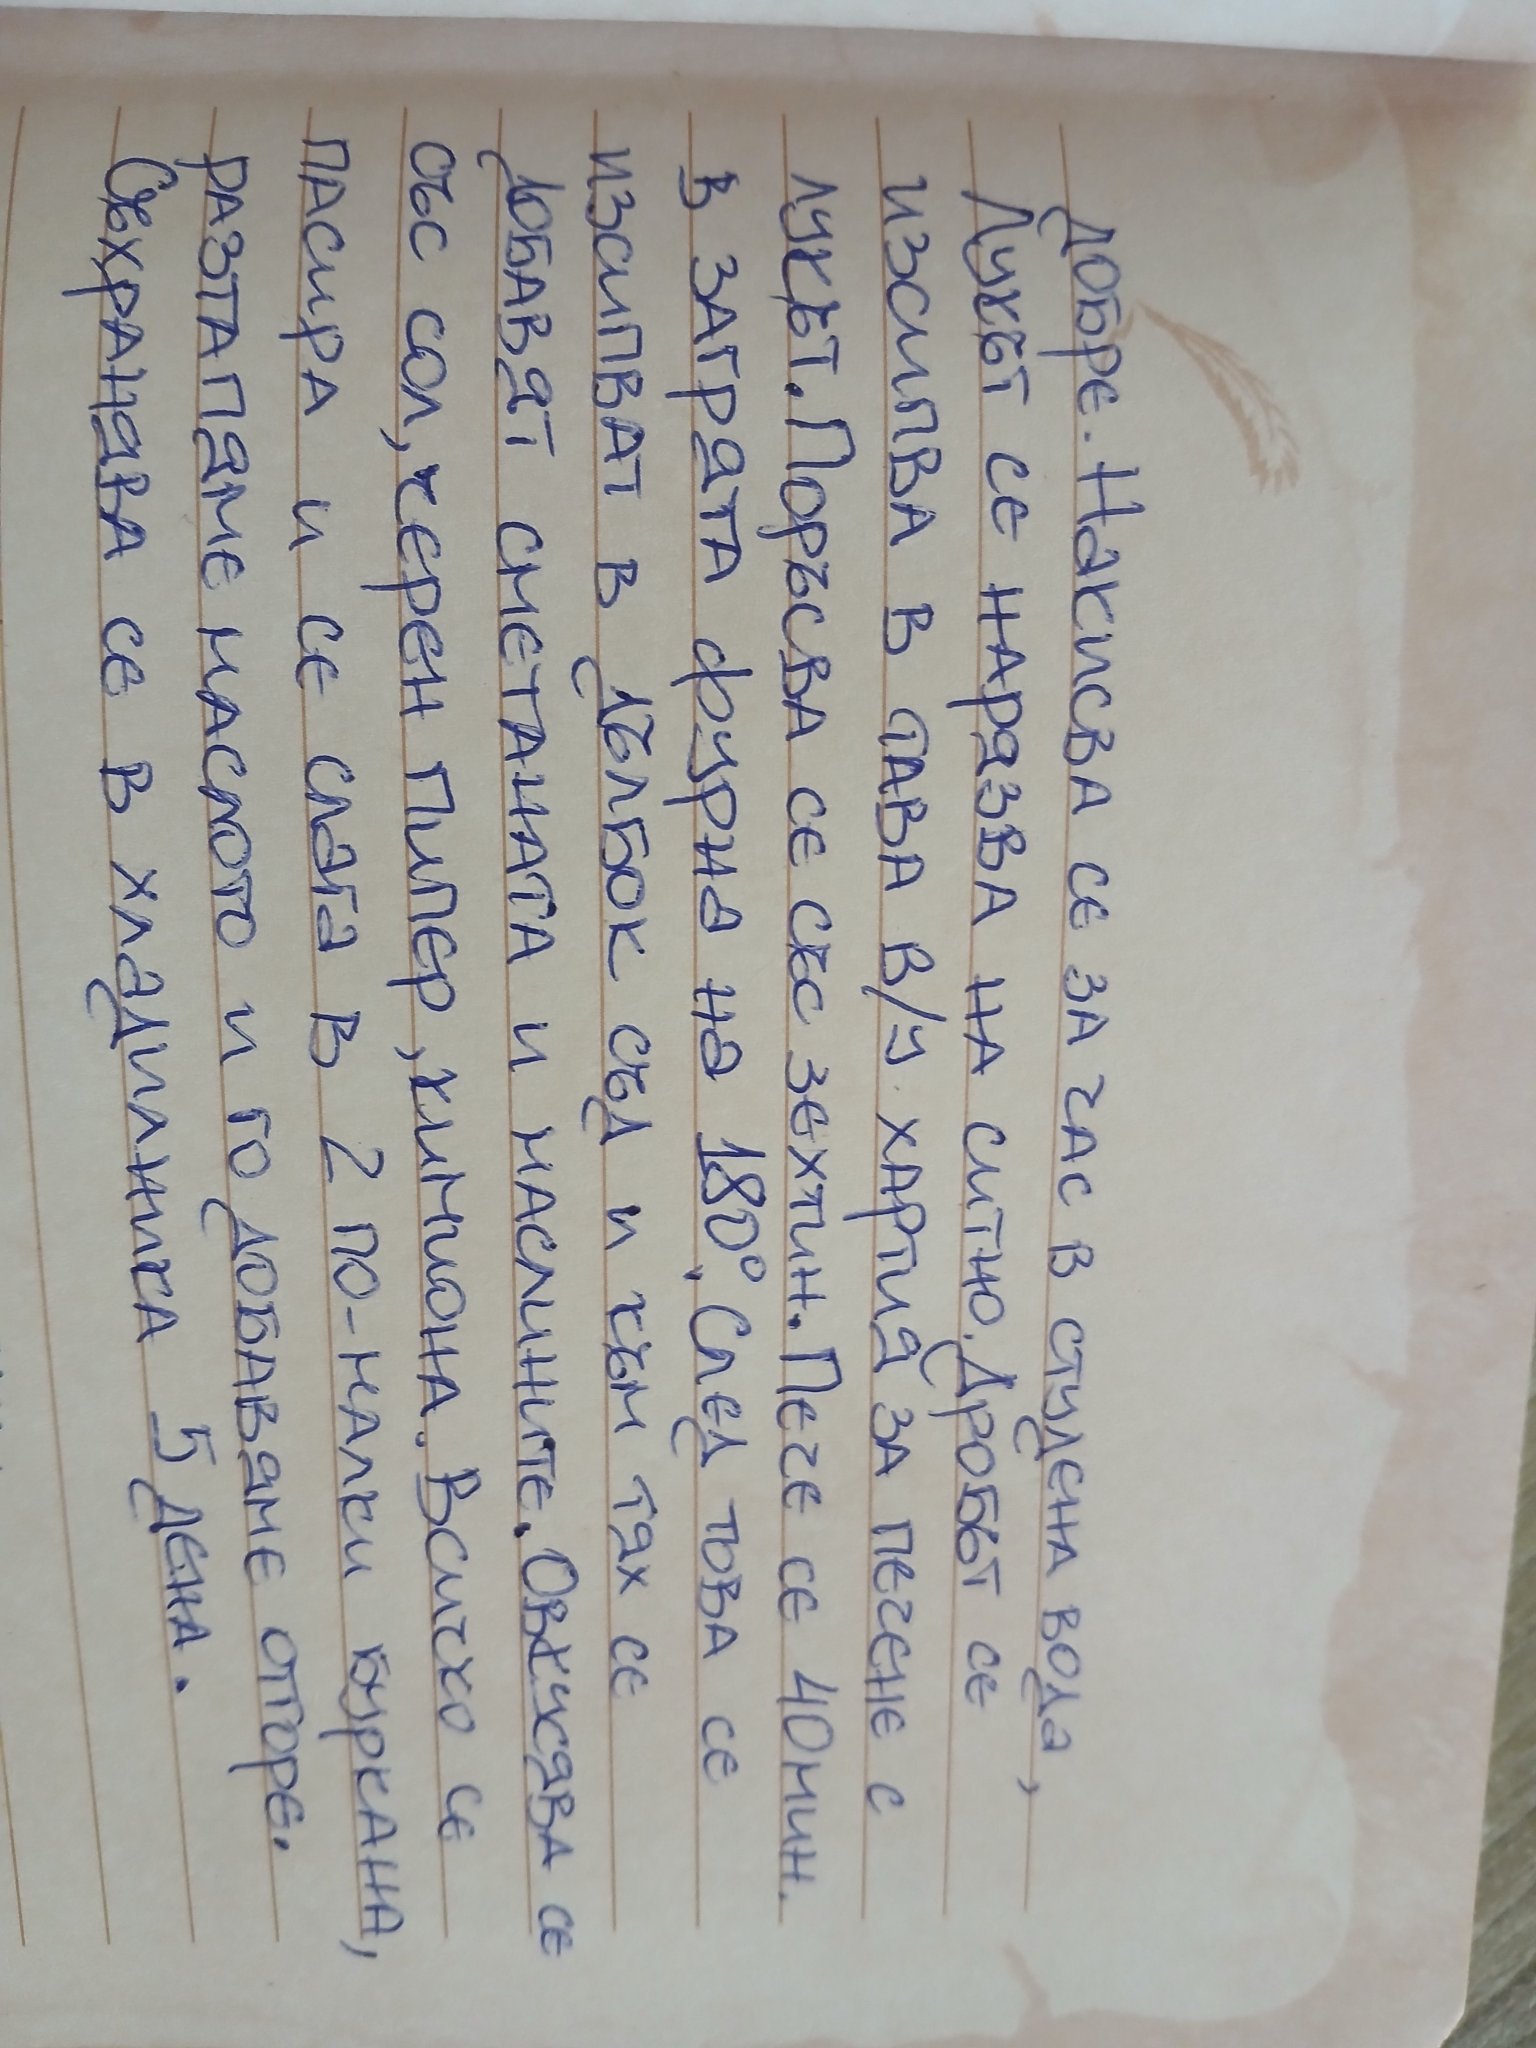 добре. Накисва се за час в студена вода,
Лукът се нарязва на ситно. Дробът се
изсипва в тава в/у хартия за печене с
лукът. Поръсва се със зехтин. Пече се 40 мин.
в загрята фурна на 180°. След това се
изсипват в дълбок съд и към тях се
добавят сметаната и маслините. Овкусява се
със сол, черен пипер, кимиона. Всичко се
пасира и се слага в 2 по-малки буркана,
разтапяме маслото и го добавяме отгоре.
Съхранява се в хладилника 5 дена.